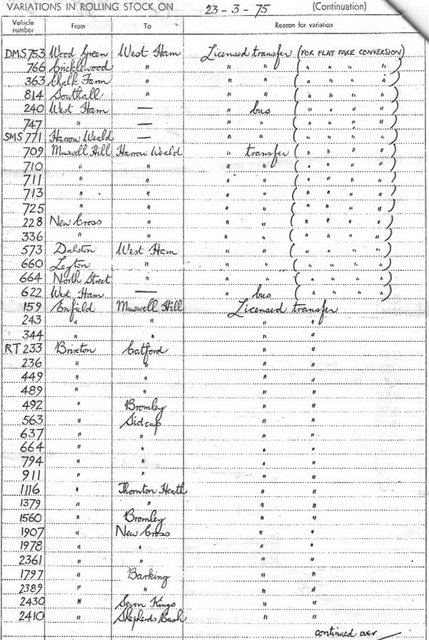 VARIATIONS IN ROLLING STOCK ON 23-3-75 (Continuation)
Vehicle number From To Reason for variation
DMS 753 Wood Green West Ham Licensed transfer (FOR FLAT FARE CONVERSION)
766 Cricklewood " " " ( " " " " )
363 Chalk Farm " " " ( " " " " )
814 Southall " " " ( " " " " )
240 West Ham — " bus ( " " " " )
747 " — " " ( " " " " )
SMS 771 Harrow Weald — " " ( " " " " )
709 Muswell Hill Harrow Weald " transfer ( " " " " )
710 " " " " ( " " " " )
711 " " " " ( " " " " )
713 " " " " ( " " " " )
725 " " " " ( " " " " )
228 New Cross " " " ( " " " " )
336 " " " " ( " " " " )
573 Dalston West Ham " " ( " " " " )
660 Leyton " " " ( " " " " )
664 North Street " " " ( " " " " )
622 West Ham — " bus ( " " " " )
159 Enfield Muswell Hill Licensed transfer
243 " " " "
344 " " " "
RT 233 Brixton Catford " "
236 " " " "
449 " " " "
489 " " " "
492 " Bromley " "
563 " Sidcup " "
637 " " " "
664 " " " "
794 " " " "
911 " " " "
1116 " Thornton Heath " "
1379 " " " "
1560 " Bromley " "
1907 " New Cross " "
1978 " " " "
2361 " " " "
1797 " Barking " "
2389 " " " "
2430 " Seven Kings " "
2410 " Shepherds Bush " "
continued over